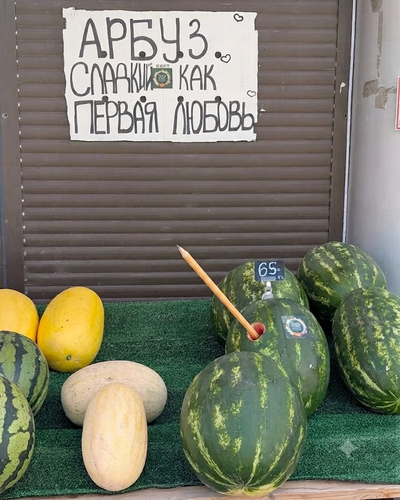 АРБУЗ
СЛАДКИЙ КАК
ПЕРВАЯ ЛЮБОВЬ
65=